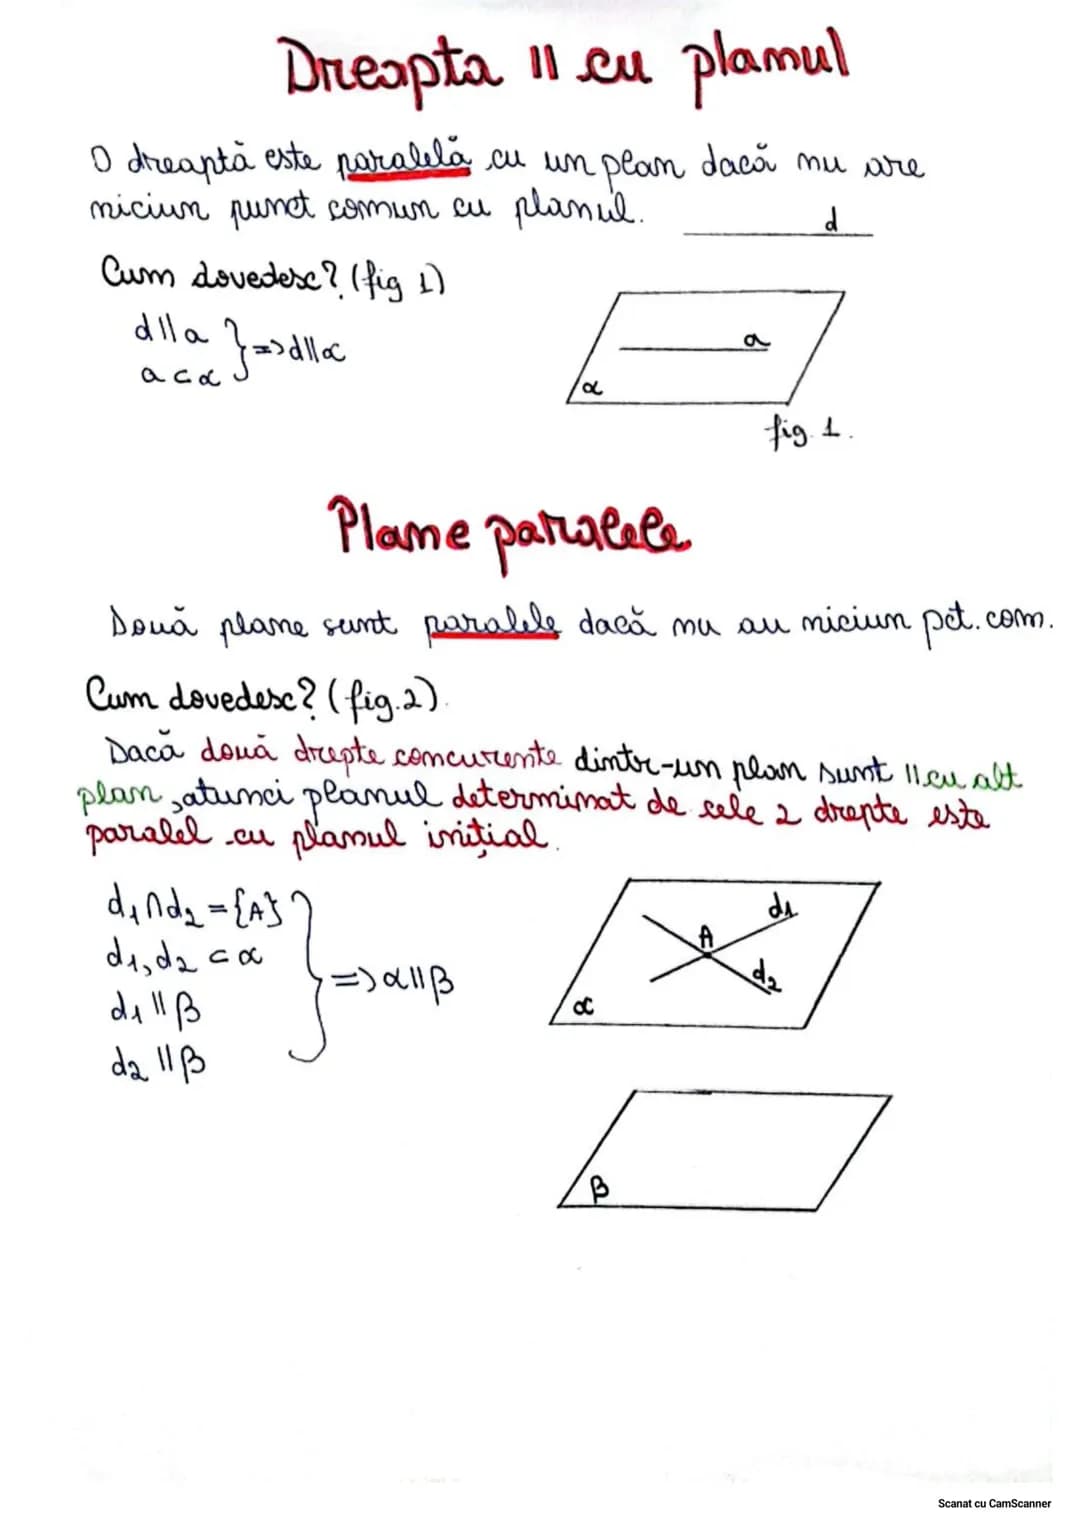 Dreapta || cu planul
O dreaptă este paralelă cu un plan dacă nu are
niciun punct comun cu planul.
d
Cum dovedesc? (fig 1)
d||a
a⊂α
} => d||α
a
α
fig. 1.
Plane paralele
Două plane sunt paralele dacă nu au niciun pct. com.
Cum dovedesc? (fig.2).
Dacă două drepte concurente dintr-un plan sunt || cu alt
plan, atunci planul determinat de cele 2 drepte este
paralel cu planul inițial.
d₁∩d₂={A}
d₁,d₂ ⊂ α
d₁ || β
d₂ || β
} => α||β
d₁
A
d₂
α
β
Scanat cu CamScanner